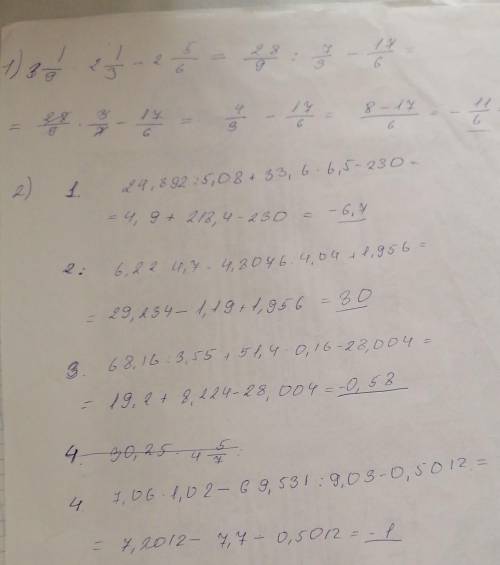 1) 3 1/9 2 1/3 - 2 5/6 = 28/9 : 7/3 - 17/6 =
= 28/9 · 3/7 - 17/6 = 4/3 - 17/6 = 8-17/6 = - 11/6
2) 1. 24,892:5,08 + 33,6 · 6,5-230=
= 4,9 + 218,4-230 = -6,7
2: 6,22 4,7 - 4,8076 : 4,04 + 1,956 =
= 29,234 - 1,19+1,956 = 30
3. 68,16:3,55 + 51,4 · 0,16-28,004 =
= 19,2 + 8,224-28,004 = -0,58
4. 30,25 · 4 5/7:
4 7,06 · 1,02 - 69,531 : 9,03-0,5012 =
= 7,2012 - 7,7 - 0,5012 = -1